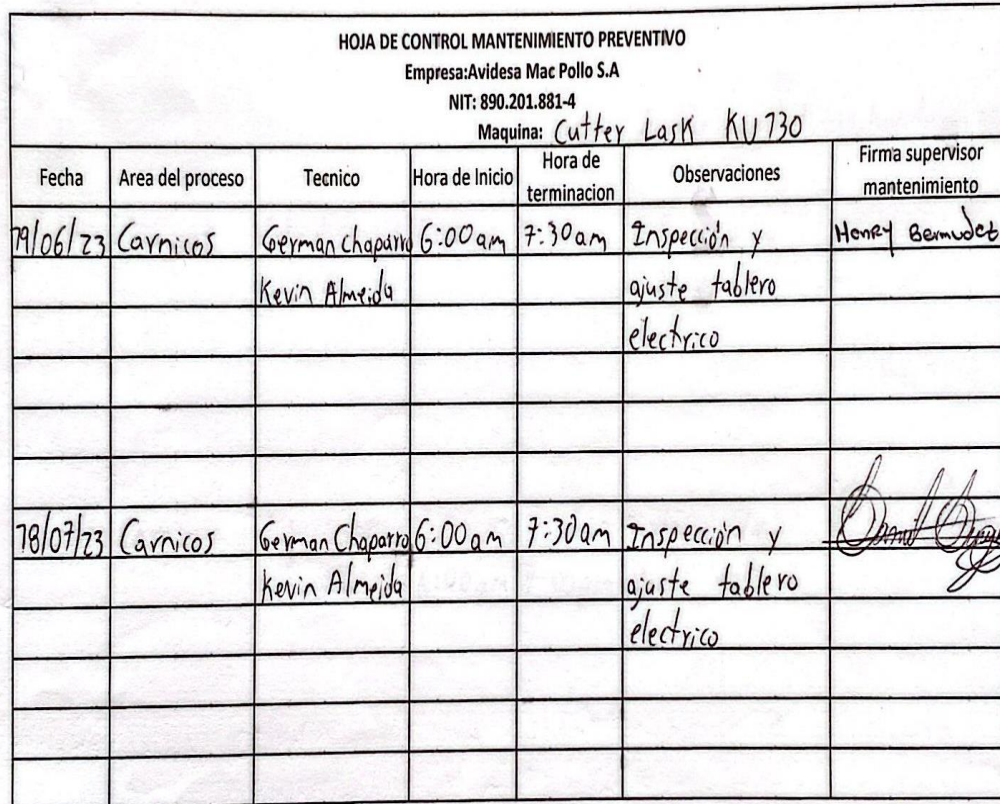 HOJA DE CONTROL MANTENIMIENTO PREVENTIVO
Empresa:Avidesa Mac Pollo S.A
NIT: 890.201.881-4
Maquina: Cutter Lask KU 130
Fecha Area del proceso Tecnico Hora de Inicio Hora de terminacion Observaciones Firma supervisor mantenimiento
19/06/23 Carnicos German chaparro 6:00 am 7:30 am Inspección y Henry Bermudez
Kevin Almeida ajuste tablero
electrico
18/07/23 Carnicos German Chaparro 6:00 am 7:30 am Inspección y
Kevin Almeida ajuste tablero
electrico